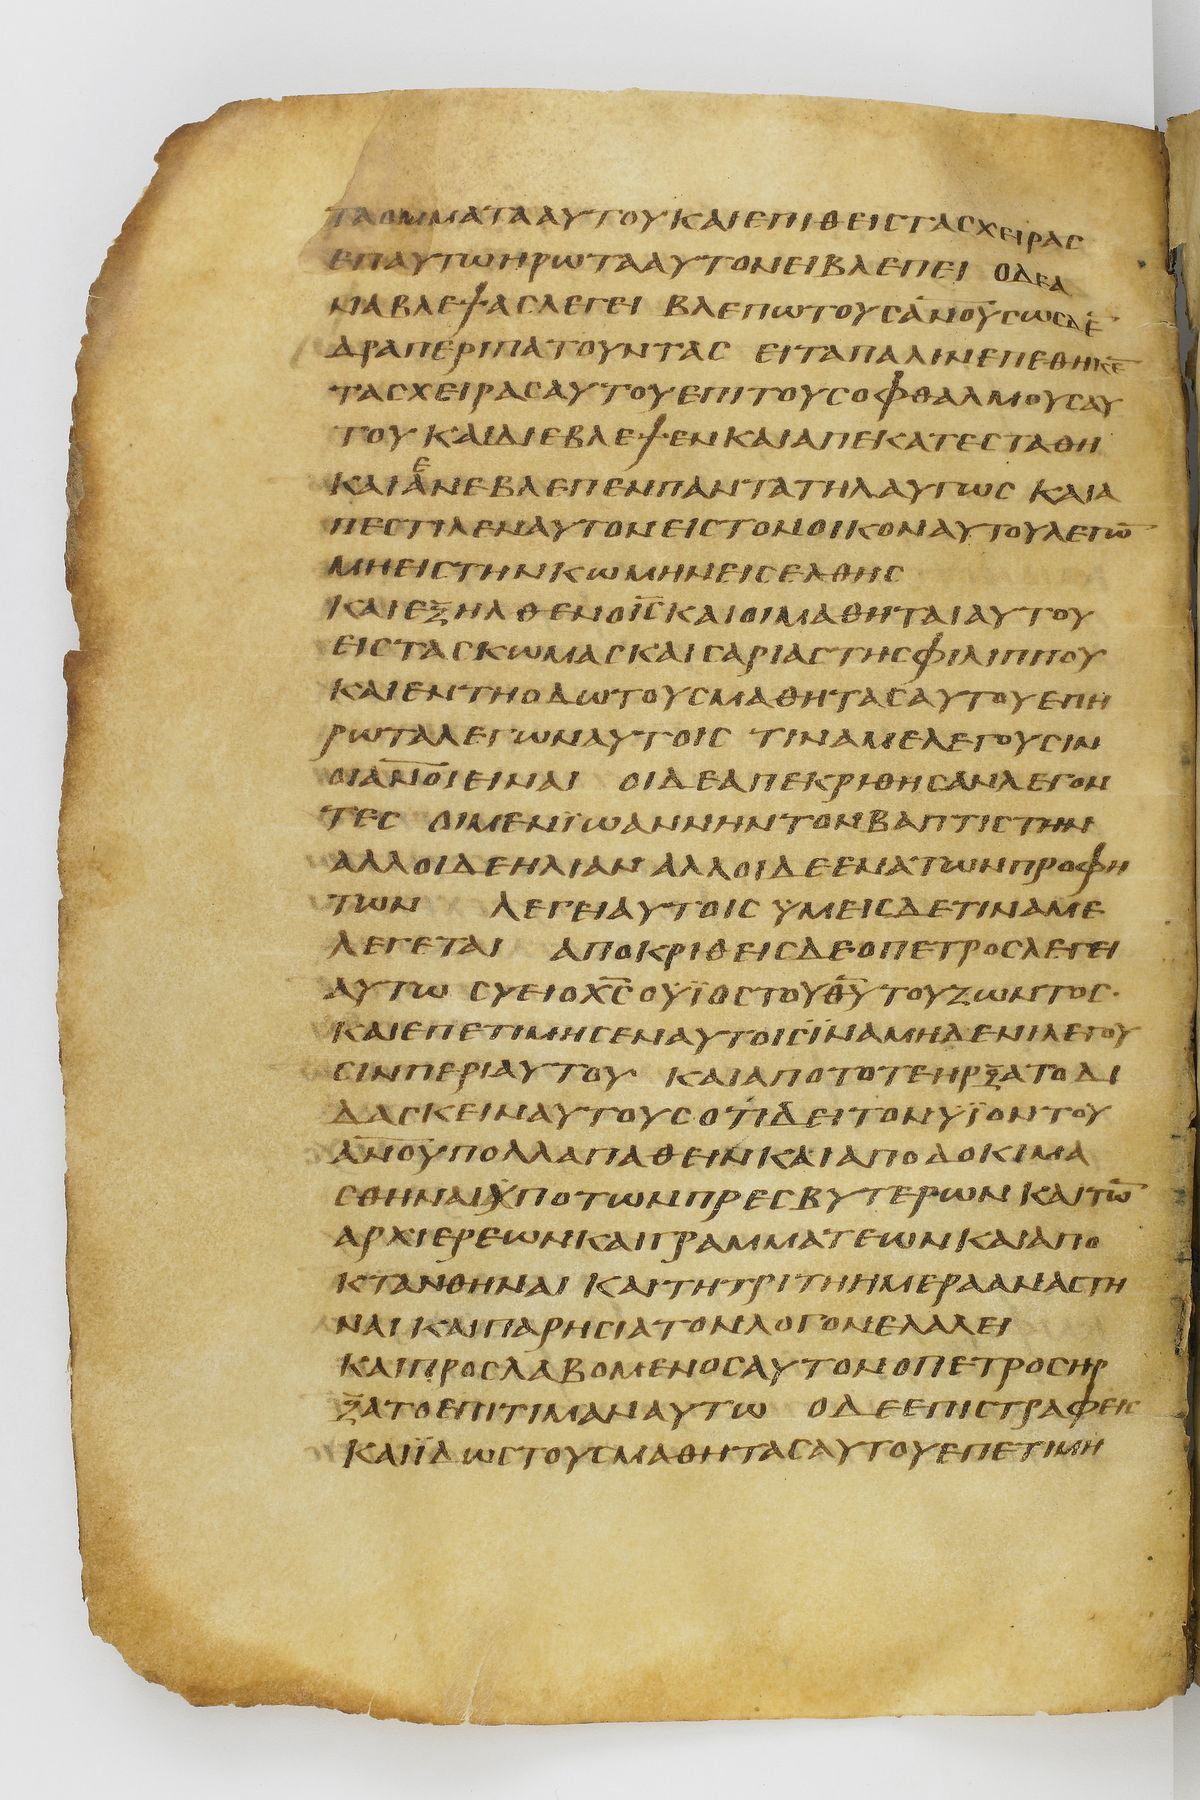 ΤΑΟΜΜΑΤΑΑΥΤΟΥΚΑΙΕΠΙΘΕΙCΤΑCΧΕΙΡΑC
ΕΠΑΥΤΩΗΡΩΤΑΑΥΤΟΝΕΙΒΛΕΠΕΙ ΟΔΕΑ
ΝΑΒΛΕΨΑCΛΕΓΕΙ ΒΛΕΠΩΤΟΥCΑ̅Ν̅Ο̅Υ̅CΩCΔΕ̅
ΔΡΑΠΕΡΙΠΑΤΟΥΝΤΑC ΕΙΤΑΠΑΛΙΝΕΠΕΘΗΚΕ̅
ΤΑCΧΕΙΡΑCΑΥΤΟΥΕΠΙΤΟΥCΟΦΘΑΛΜΟΥCΑΥ
ΤΟΥ ΚΑΙΔΙΕΒΛΕΨΕΝΚΑΙΑΠΕΚΑΤΕCΤΑΘΗ
ΚΑΙΑΕΝΕΒΛΕΠΕΝΠΑΝΤΑΤΗΛΑΥΓΩC ΚΑΙΑ
ΠΕCΤΙΛΕΝΑΥΤΟΝΕΙCΤΟΝΟΙΚΟΝΑΥΤΟΥΛΕΓΩ̅
ΜΗΕΙCΤΗΝΚΩΜΗΝΕΙCΕΛΘΗC
ΚΑΙΕΞΗΛΘΕΝΟΙ̅C̅ΚΑΙΟΙΜΑΘΗΤΑΙΑΥΤΟΥ
ΕΙCΤΑCΚΩΜΑCΚΑΙCΑΡΙΑCΤΗCΦΙΛΙΠΠΟΥ
ΚΑΙΕΝΤΗΟΔΩΤΟΥCΜΑΘΗΤΑCΑΥΤΟΥΕΠΗ
ΡΩΤΑΛΕΓΩΝΑΥΤΟΙC ΤΙΝΑΜΕΛΕΓΟΥCΙΝ
ΟΙΑ̅Ν̅Ο̅Ι̅ΕΙΝΑΙ ΟΙΔΕΑΠΕΚΡΙΘΗCΑΝΛΕΓΟΝ
ΤΕC ΟΙΜΕΝΪΩΑΝΝΗΝΤΟΝΒΑΠΤΙCΤΗΝ
ΑΛΛΟΙΔΕΗΛΙΑΝ ΑΛΛΟΙΔΕΕΝΑΤΩΝΠΡΟΦΗ
ΤΩΝ ΛΕΓΕΙΑΥΤΟΙC ΥΜΕΙCΔΕΤΙΝΑΜΕ
ΛΕΓΕΤΑΙ ΑΠΟΚΡΙΘΕΙCΔΕΟΠΕΤΡΟCΛΕΓΕΙ
ΑΥΤΩ CΥΕΙΟΧ̅C̅ΟΥΪΟCΤΟΥΘ̅Υ̅ΤΟΥΖΩΝΤΟC·
ΚΑΙΕΠΕΤΙΜΗCΕΝΑΥΤΟΙCΪΝΑΜΗΔΕΝΙΛΕΓΟΥ
CΙΝΠΕΡΙΑΥΤΟΥ ΚΑΙΑΠΟΤΟΤΕΗΡΞΑΤΟΔΙ
ΔΑCΚΕΙΝΑΥΤΟΥCΟΤΙΔΕΙΤΟΝΥΪΟΝΤΟΥ
Α̅Ν̅Ο̅Υ̅ΠΟΛΛΑΠΑΘΕΙΝΚΑΙΑΠΟΔΟΚΙΜΑ
CΘΗΝΑΙΥΠΟΤΩΝΠΡΕCΒΥΤΕΡΩΝ ΚΑΙΤΩ̅
ΑΡΧΙΕΡΕΩΝΚΑΙΓΡΑΜΜΑΤΕΩΝΚΑΙΑΠΟ
ΚΤΑΝΘΗΝΑΙ ΚΑΙΤΗΤΡΙΤΗΗΜΕΡΑΑΝΑCΤΗ
ΝΑΙΚΑΙΠΑΡΗCΙΑΤΟΝΛΟΓΟΝΕΛΑΛΕΙ
ΚΑΙΠΡΟCΛΑΒΟΜΕΝΟCΑΥΤΟΝΟΠΕΤΡΟCΗΡ
ΞΑΤΟΕΠΙΤΙΜΑΝΑΥΤΩ ΟΔΕΕΠΙCΤΡΑΦΕΙC
ΚΑΙΪΔΩCΤΟΥCΜΑΘΗΤΑCΑΥΤΟΥΕΠΕΤΙΜΗ